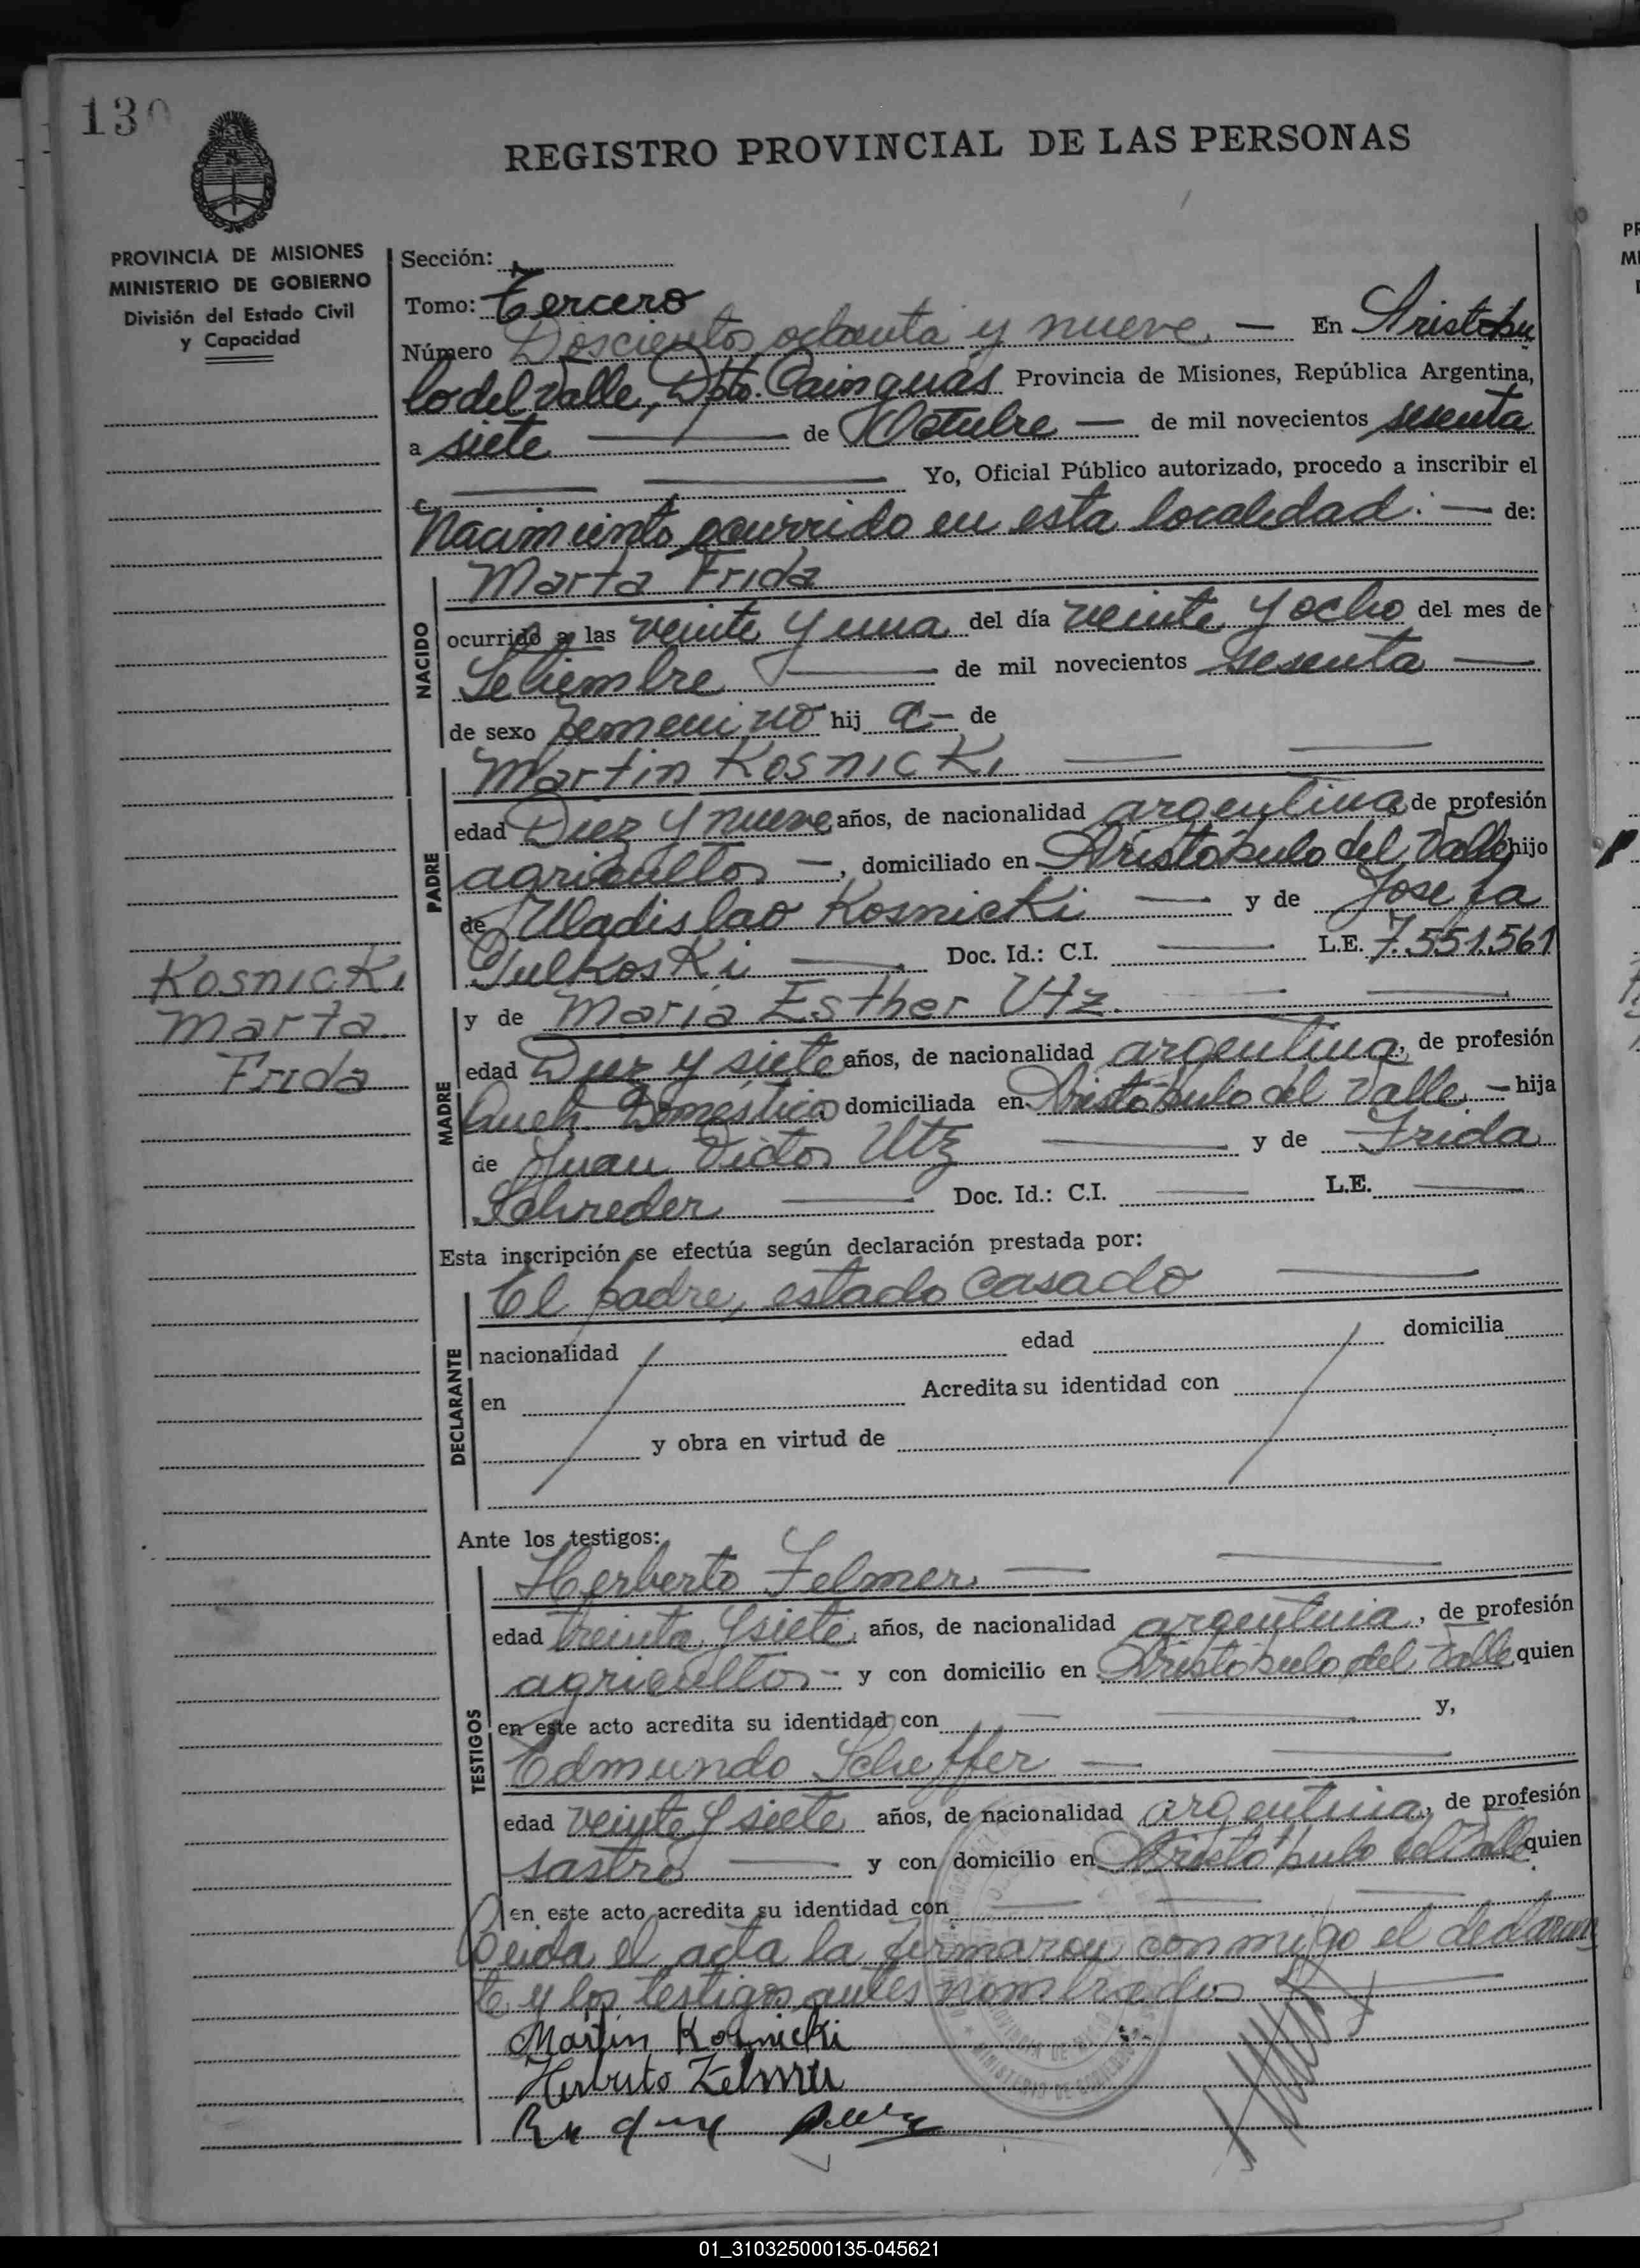 130
REGISTRO PROVINCIAL DE LAS PERSONAS
PROVINCIA DE MISIONES
MINISTERIO DE GOBIERNO
División del Estado Civil
y Capacidad
Sección:
Tomo: Tercero
Número Doscientos ochenta y nueve — En Aristóbu
lo del Valle, Dpto. Cainguás Provincia de Misiones, República Argentina,
a siete — de Octubre — de mil novecientos sesenta
Yo, Oficial Público autorizado, procedo a inscribir el
Nacimiento ocurrido en esta localidad. — de:
NACIDO
Marta Frida
ocurrido a las veinte y una del día veinte y ocho del mes de
Setiembre — de mil novecientos sesenta —
de sexo femenino hij a — de
PADRE
Martin Kosnicki —
edad Diez y nueve años, de nacionalidad argentina de profesión
agricultor —, domiciliado en Aristóbulo del Valle hijo
de Uladislao Kosnicki — y de Josefa
Doc. Id.: C.I. — L.E. 7.551.561
Kosnicki
Marta
Frida
MADRE
y de Maria Esther Utz. —
edad Diez y siete años, de nacionalidad argentina, de profesión
Queh. Domésticos domiciliada en Aristóbulo del Valle. — hija
de Juan Victor Utz — y de Frida
Schreder — Doc. Id.: C.I. — L.E. —
Esta inscripción se efectúa según declaración prestada por:
DECLARANTE
El padre, estado casado —
nacionalidad edad domicilia
en Acredita su identidad con
y obra en virtud de
Ante los testigos:
TESTIGOS
Herberto Felmer —
edad treinta y siete años, de nacionalidad argentina, de profesión
agricultor — y con domicilio en Aristóbulo del Valle quien
en este acto acredita su identidad con — y,
Edmundo Scheffer —
edad veinte y siete años, de nacionalidad argentina, de profesión
sastre — y con domicilio en Aristóbulo del Valle quien
en este acto acredita su identidad con —
Leida el acta la firmaron conmigo el declaran
te y los testigos antes nombrados —
Martin Kosnicki
Herberto
01_310325000135-045621